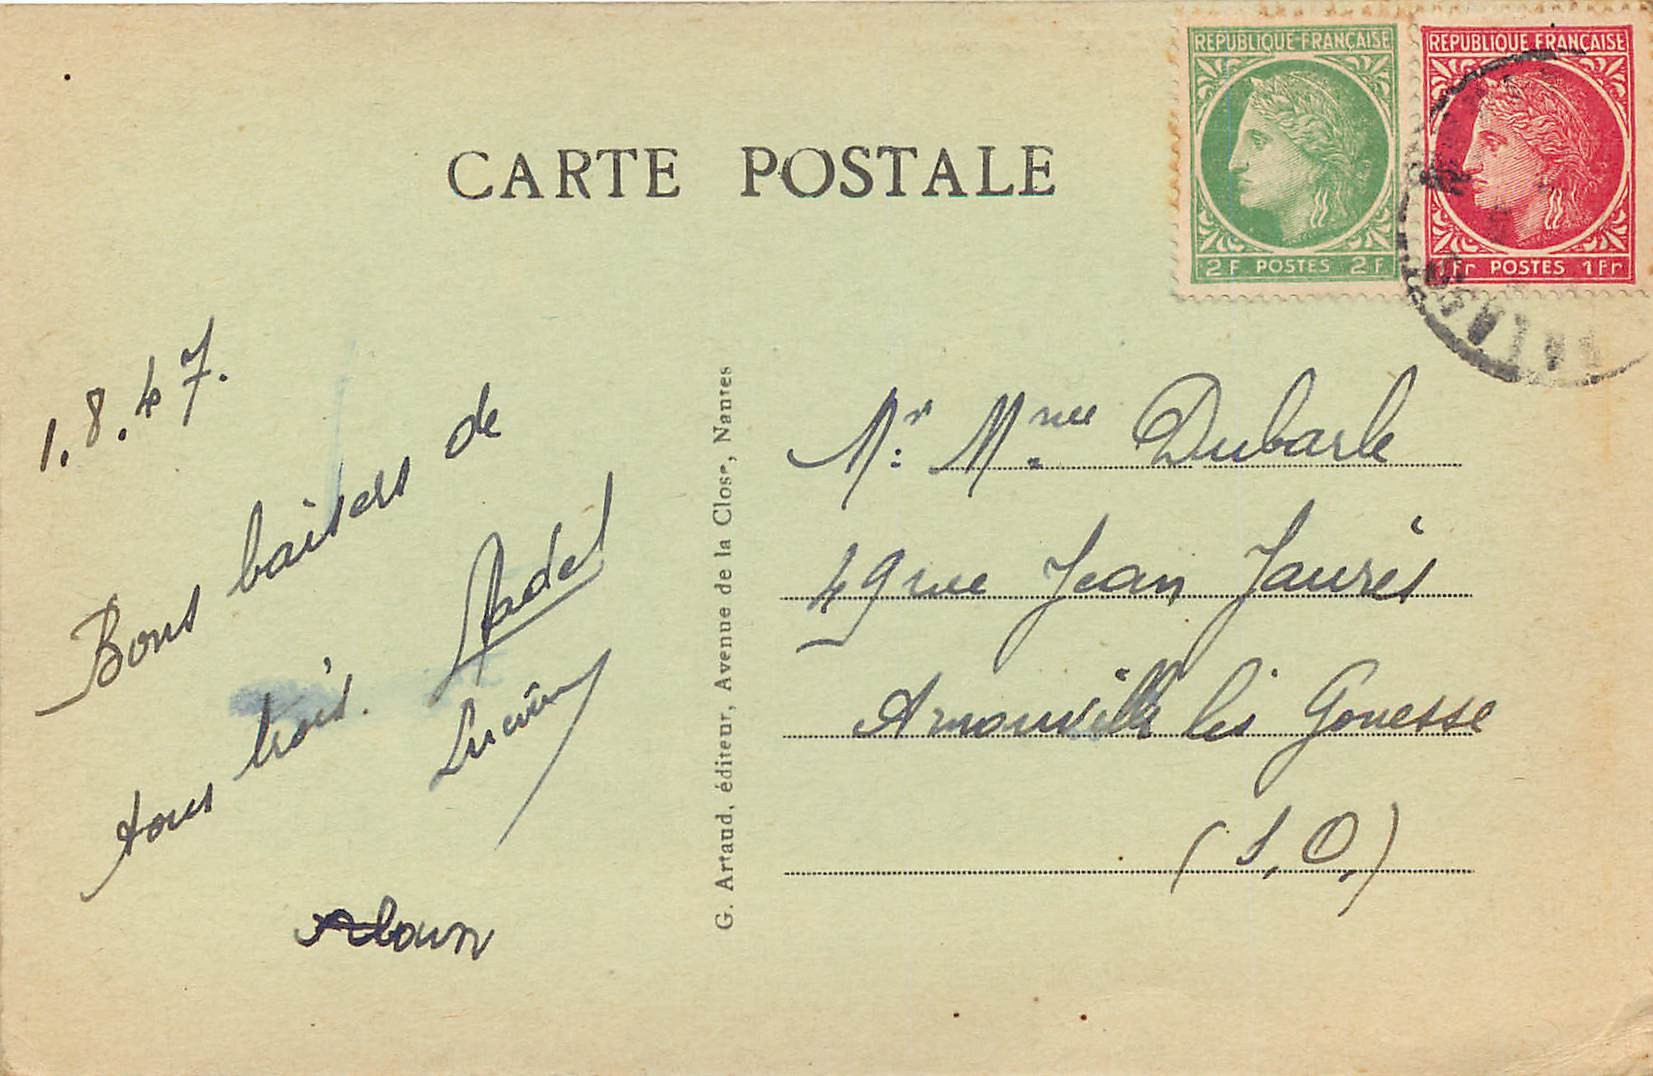 CARTE POSTALE
REPUBLIQUE FRANÇAISE
2F POSTES 2F
REPUBLIQUE FRANÇAISE
1Fr POSTES 1Fr
1.8.47.
Bons baisers de
tous trois.
Lucien
Alain
G. Artaud, éditeur, Avenue de la Close, Nantes
Mr. Mme. Dubarle
49 rue Jean Jaurès
Arnouville lès Gonesse
(S.O.)